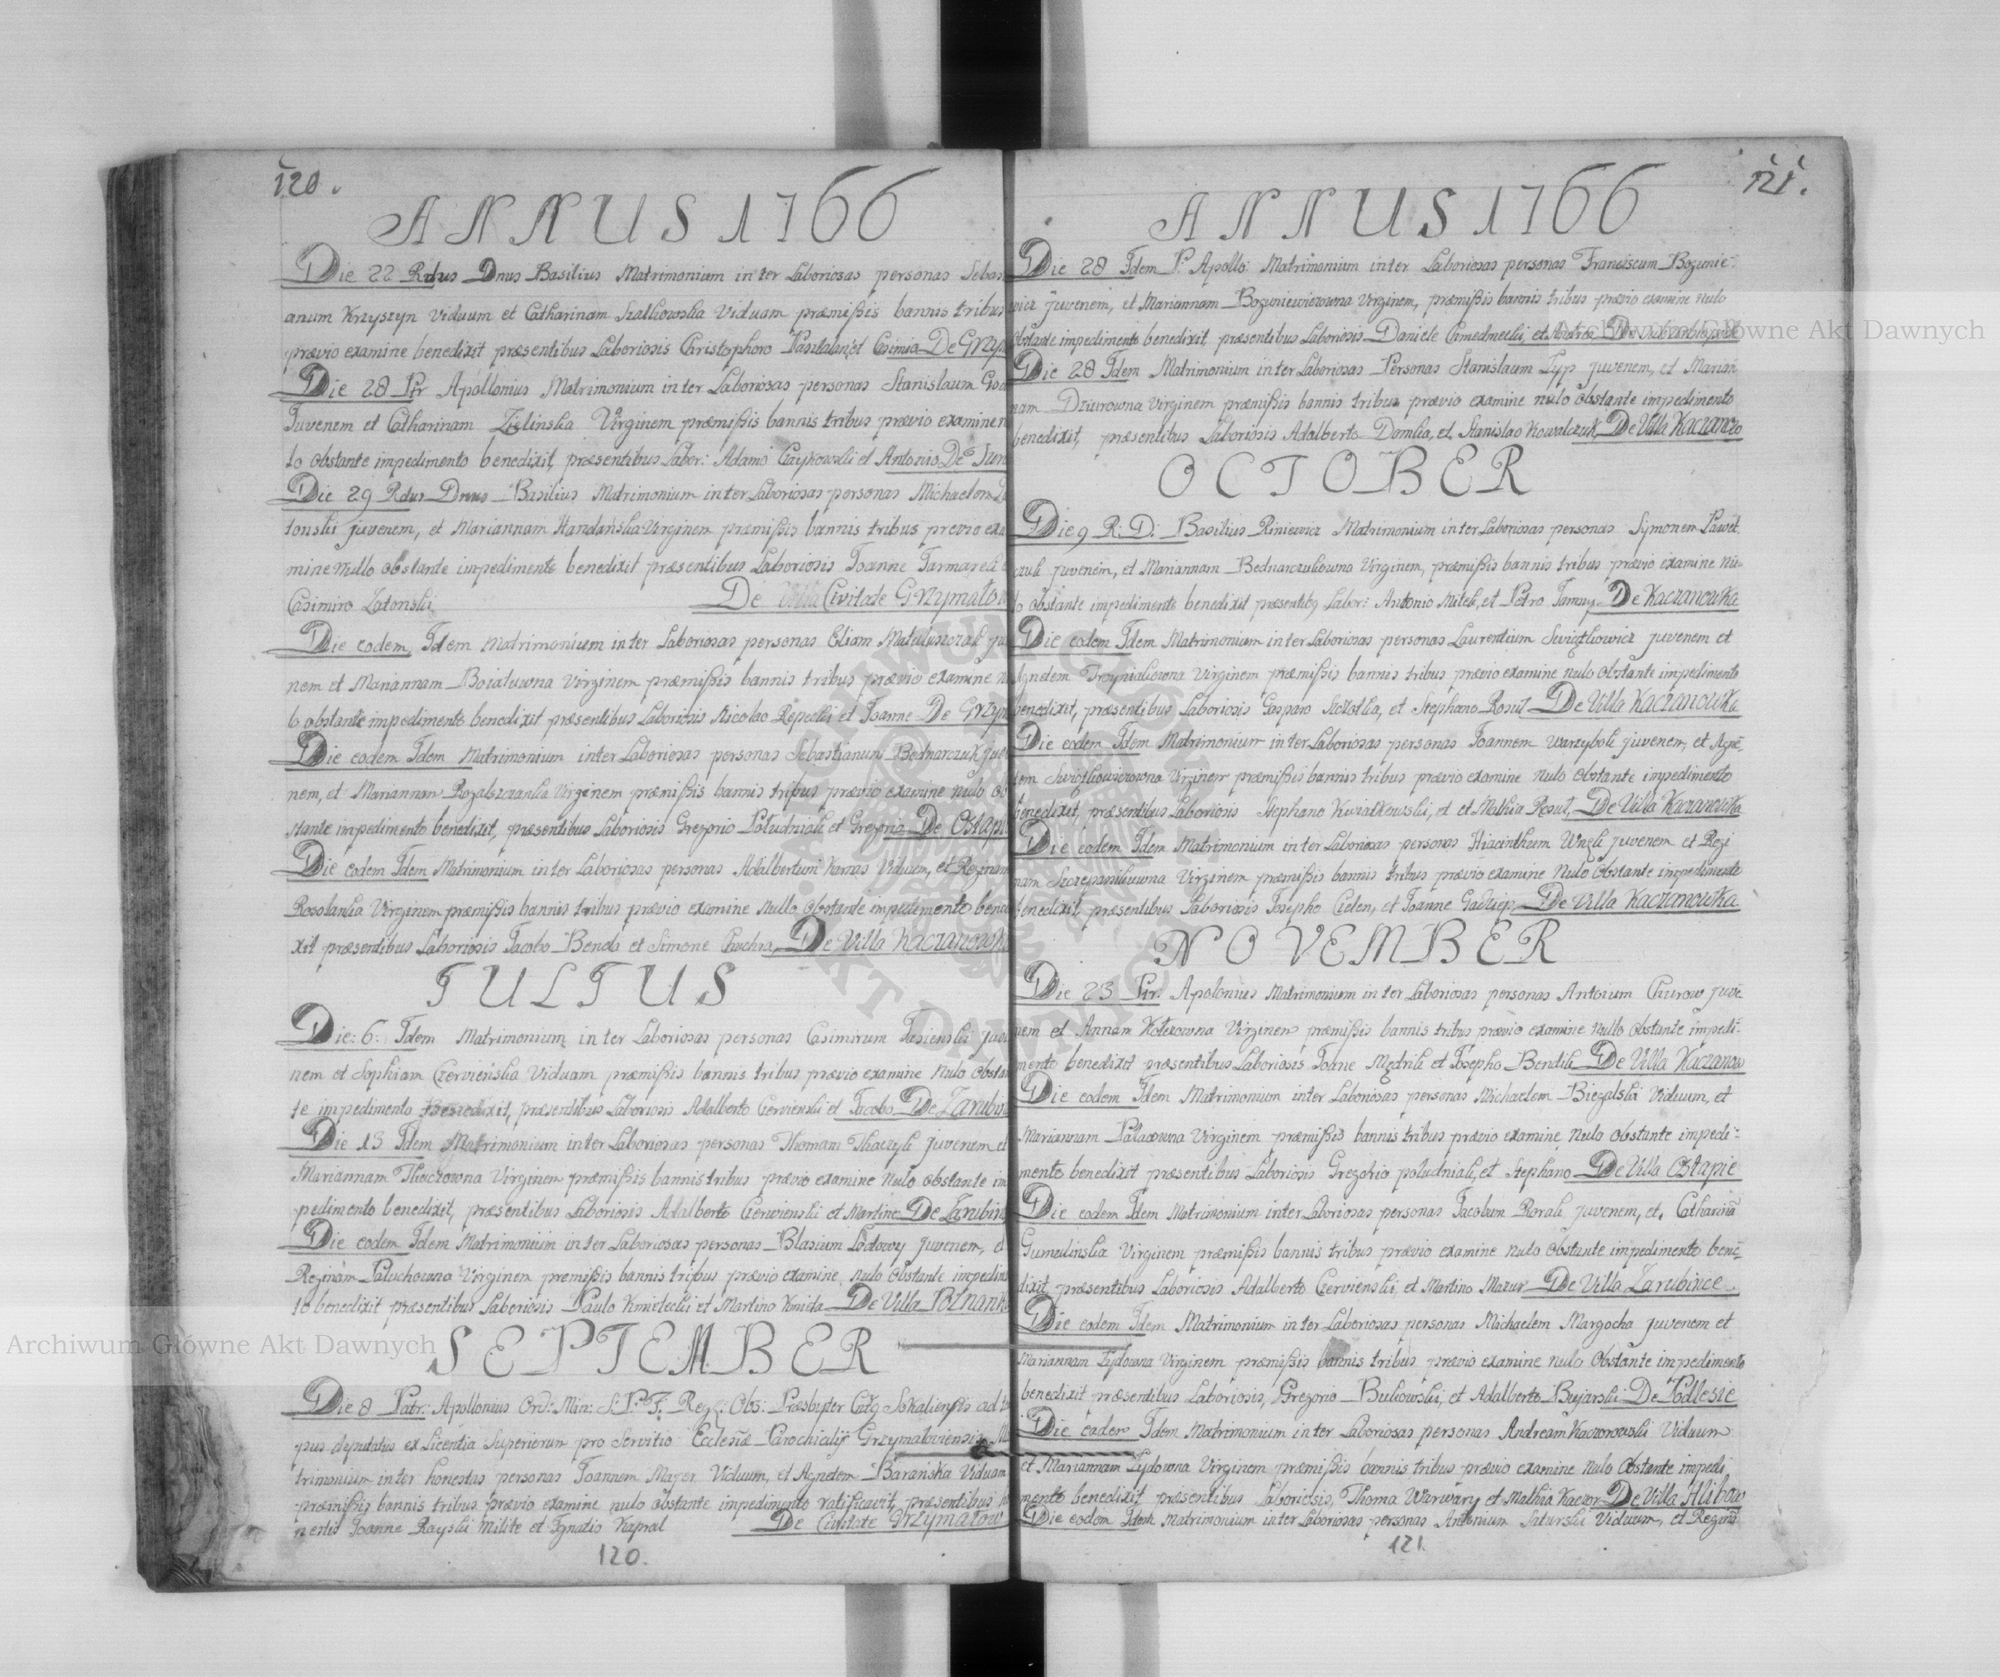 120.
ANNUS 1766
Die 22 Rdus Dnus Basilius Matrimonium inter Laboriosas personas Sebas
anum Krzyszyn Viduum et Catharinam Szalkowska Viduam præmißis bannis tribus
prævio examine benedixit præsentibus Laboriosis Christophoro et Cosmia De Grzym
Die 28 Ptr Apollonius Matrimonium inter Laboriosas personas Stanislaum
Juvenem et Catharinam Zielinska Virginem præmißis bannis tribus prævio examine n
lo obstante impedimento benedixit, præsentibus Labor: Adamo Czyzkowski et Antonio De
Die 29 Rdus Dnus Basilius Matrimonium inter Laboriosas personas Michaelem
tonski juvenem, et Mariannam Handańska Virginem præmißis bannis tribus previo exa
mine Nullo obstante impedimento benedixit præsentibus Laboriosis Joanne
Casimiro Zatonski De Civitate Grzymałow
Die eodem Idem Matrimonium inter Laboriosas personas Eliam Mateluszczak ju
nem et Mariannam Boiatuwna Virginem præmißis bannis tribus prævio examine n
lo obstante impedimento benedixit præsentibus Laboriosis Nicolao Repecki et Joanne De Grzym
Die eodem Idem Matrimonium inter Laboriosas personas Sebastianum Bednarczuk juv
nem, et Mariannam Virginem præmißis bannis tribus prævio examine nulo ob
stante impedimento benedixit, præsentibus Laboriosis Gregorio Południak et Gregorio De Ostapi
Die eodem Idem Matrimonium inter Laboriosas personas Adalbertum Karnas Viduum, et Reginam
Rosolanka Virginem præmißis bannis tribus prævio examine Nullo obstante impedimento bene
xit præsentibus Laboriosis Jacobo Benda et Simone Chuchra De Villa Kaczanowk
JULIUS
Die: 6: Idem Matrimonium inter Laboriosas personas Casimirum Jasienski juve
nem et Sophiam Czervieńska Viduam præmißis bannis tribus prævio examine Nulo obstan
te impedimento Benedixit, præsentibus Laboriosis Adalberto Czervienski et Jacobo De Zarubin
Die 13 Idem Matrimonium inter Laboriosas personas Thomam Tkaczyk juvenem et
Mariannam Tkaczowna Virginem præmißis bannis tribus prævio examine Nulo obstante im
pedimento benedixit, præsentibus Laboriosis Adalberto Czervienski et Martino De Zarubin
Die eodem Idem Matrimonium inter Laboriosas personas Blasium Lodowy juvenem, et
Reginam Paluchowna Virginem premißis bannis tribus prævio examine nulo obstante impedim
to benedixit præsentibus Laboriosis Paulo Kmietecki et Martino Kmieta De Villa Poznank
SEPTEMBER
Die 8 Patr: Apollonius Ord: Min: S: P: F: Reg: Obs: Præsbyter Sokaliensis ad
pus deputatus ex Licentia Superiorum pro Servitio Ecclesiæ Parochialis Grzymaloviensis M
trimonium inter honestas personas Joannem Mazer Viduum, et Agnetem Barańska Viduam
præmißis bannis tribus prævio examine nulo obstante impedimento ratificavit, præsentibus ho
nestis Joanne Rayski Milite et Ignatio Kapral De Civitate Grzymałow
120.
121.
ANNUS 1766
Die 28 Idem P. Apollo: Matrimonium inter Laboriosas personas Franciscum Bozunie-
wicz juvenem, et Mariannam Bozuniewiczowna Virginem, præmißis bannis tribus prævio examine nulo
obstante impedimento benedixit præsentibus Laboriosis Daniele et Andrea De
Die 28 Idem Matrimonium inter Laboriosas Personas Stanislaum Zyp juvenem, et Marian
nam Dziurowna Virginem præmißis bannis tribus prævio examine nulo obstante impedimento
benedixit, præsentibus Laboriosis Adalberto Domka, et Stanislao Kowalczuk De Villa Kaczano
OCTOBER
Die 9 R: D: Basilius Riniewicz Matrimonium inter Laboriosas personas Symonem Pawel
czuk juvenem, et Mariannam Bednarczukowna Virginem, præmißis bannis tribus prævio examine Nu-
lo obstante impedimento benedixit præsentibq Labor: Antonio Mitek, et Petro Tamuy De Kaczanowka
Die eodem Idem Matrimonium inter Laboriosas personas Laurentium Swiątkowicz juvenem et
Agnetem Virginem præmißis bannis tribus prævio examine nulo obstante impedimento
benedixit, præsentibus Laboriosis Gasparo et Stephano Rosuł De Villa Kaczanowka
Die eodem Idem Matrimonium inter Laboriosas personas Joannem Warzybok juvenem, et Agne
tem Swiątkowiczowna Virginem præmißis bannis tribus prævio examine nulo obstante impedimento
benedixit, præsentibus Laboriosis Stephano Kwiatkowski, et et Mathia Rosuł, De Villa Kaczanowka
Die eodem Idem Matrimonium inter Laboriosas personas Hiacinthum juvenem et Regi
nam Szczepaniukuwna Virginem præmißis bannis tribus prævio examine Nulo obstante impedimento
benedixit præsentibus Laboriosis Josepho Cielen, et Joanne De Villa Kaczanowka
NOVEMBER
Die 23 Ptr. Apolonius Matrimonium inter Laboriosas personas Antonium Churow juve
nem et Annam Koterowna Virginem præmißis bannis tribus prævio examine Nullo obstante impedi-
mento benedixit præsentibus Laboriosis Joane et Josepho Bendik De Villa Kaczanow
Die eodem Idem Matrimonium inter Laboriosas personas Michaelem Biegalski Viduum, et
Mariannam Palaowna Virginem præmißis bannis tribus prævio examine Nulo obstante impedi-
mento benedixit præsentibus Laboriosis Gregorio południak, et Stephano De Villa Ostapie
Die eodem Idem Matrimonium inter Laboriosas personas Jacobum Rorak juvenem, et Catharina
Gumulinska Virginem præmißis bannis tribus prævio examine nulo obstante impedimento bene
dixit præsentibus Laboriosis Adalberto Czervienski, et Martino Mazur De Villa Zarubince
Die eodem Idem Matrimonium inter Laboriosas personas Michaelem Margocha juvenem et
Mariannam Zydowna Virginem præmißis bannis tribus prævio examine nulo obstante impedimento
benedixit præsentibus Laboriosis, Gregorio Bukowski, et Adalberto Bejarski De Podlesie
Die eadem Idem Matrimonium inter Laboriosas personas Andream Kaczorowski Viduum
et Mariannam Zydowna Virginem præmißis bannis tribus prævio examine nulo obstante impedi
mento benedixit præsentibus Laboriosis, Thoma Warwary et Mathia Kaczor De Villa Hlibow
Die eodem Idem Matrimonium inter Laboriosas personas Antonium Saturski Viduum, et Regina
121
Archiwum Główne Akt Dawnych
Archiwum Główne Akt Dawnych